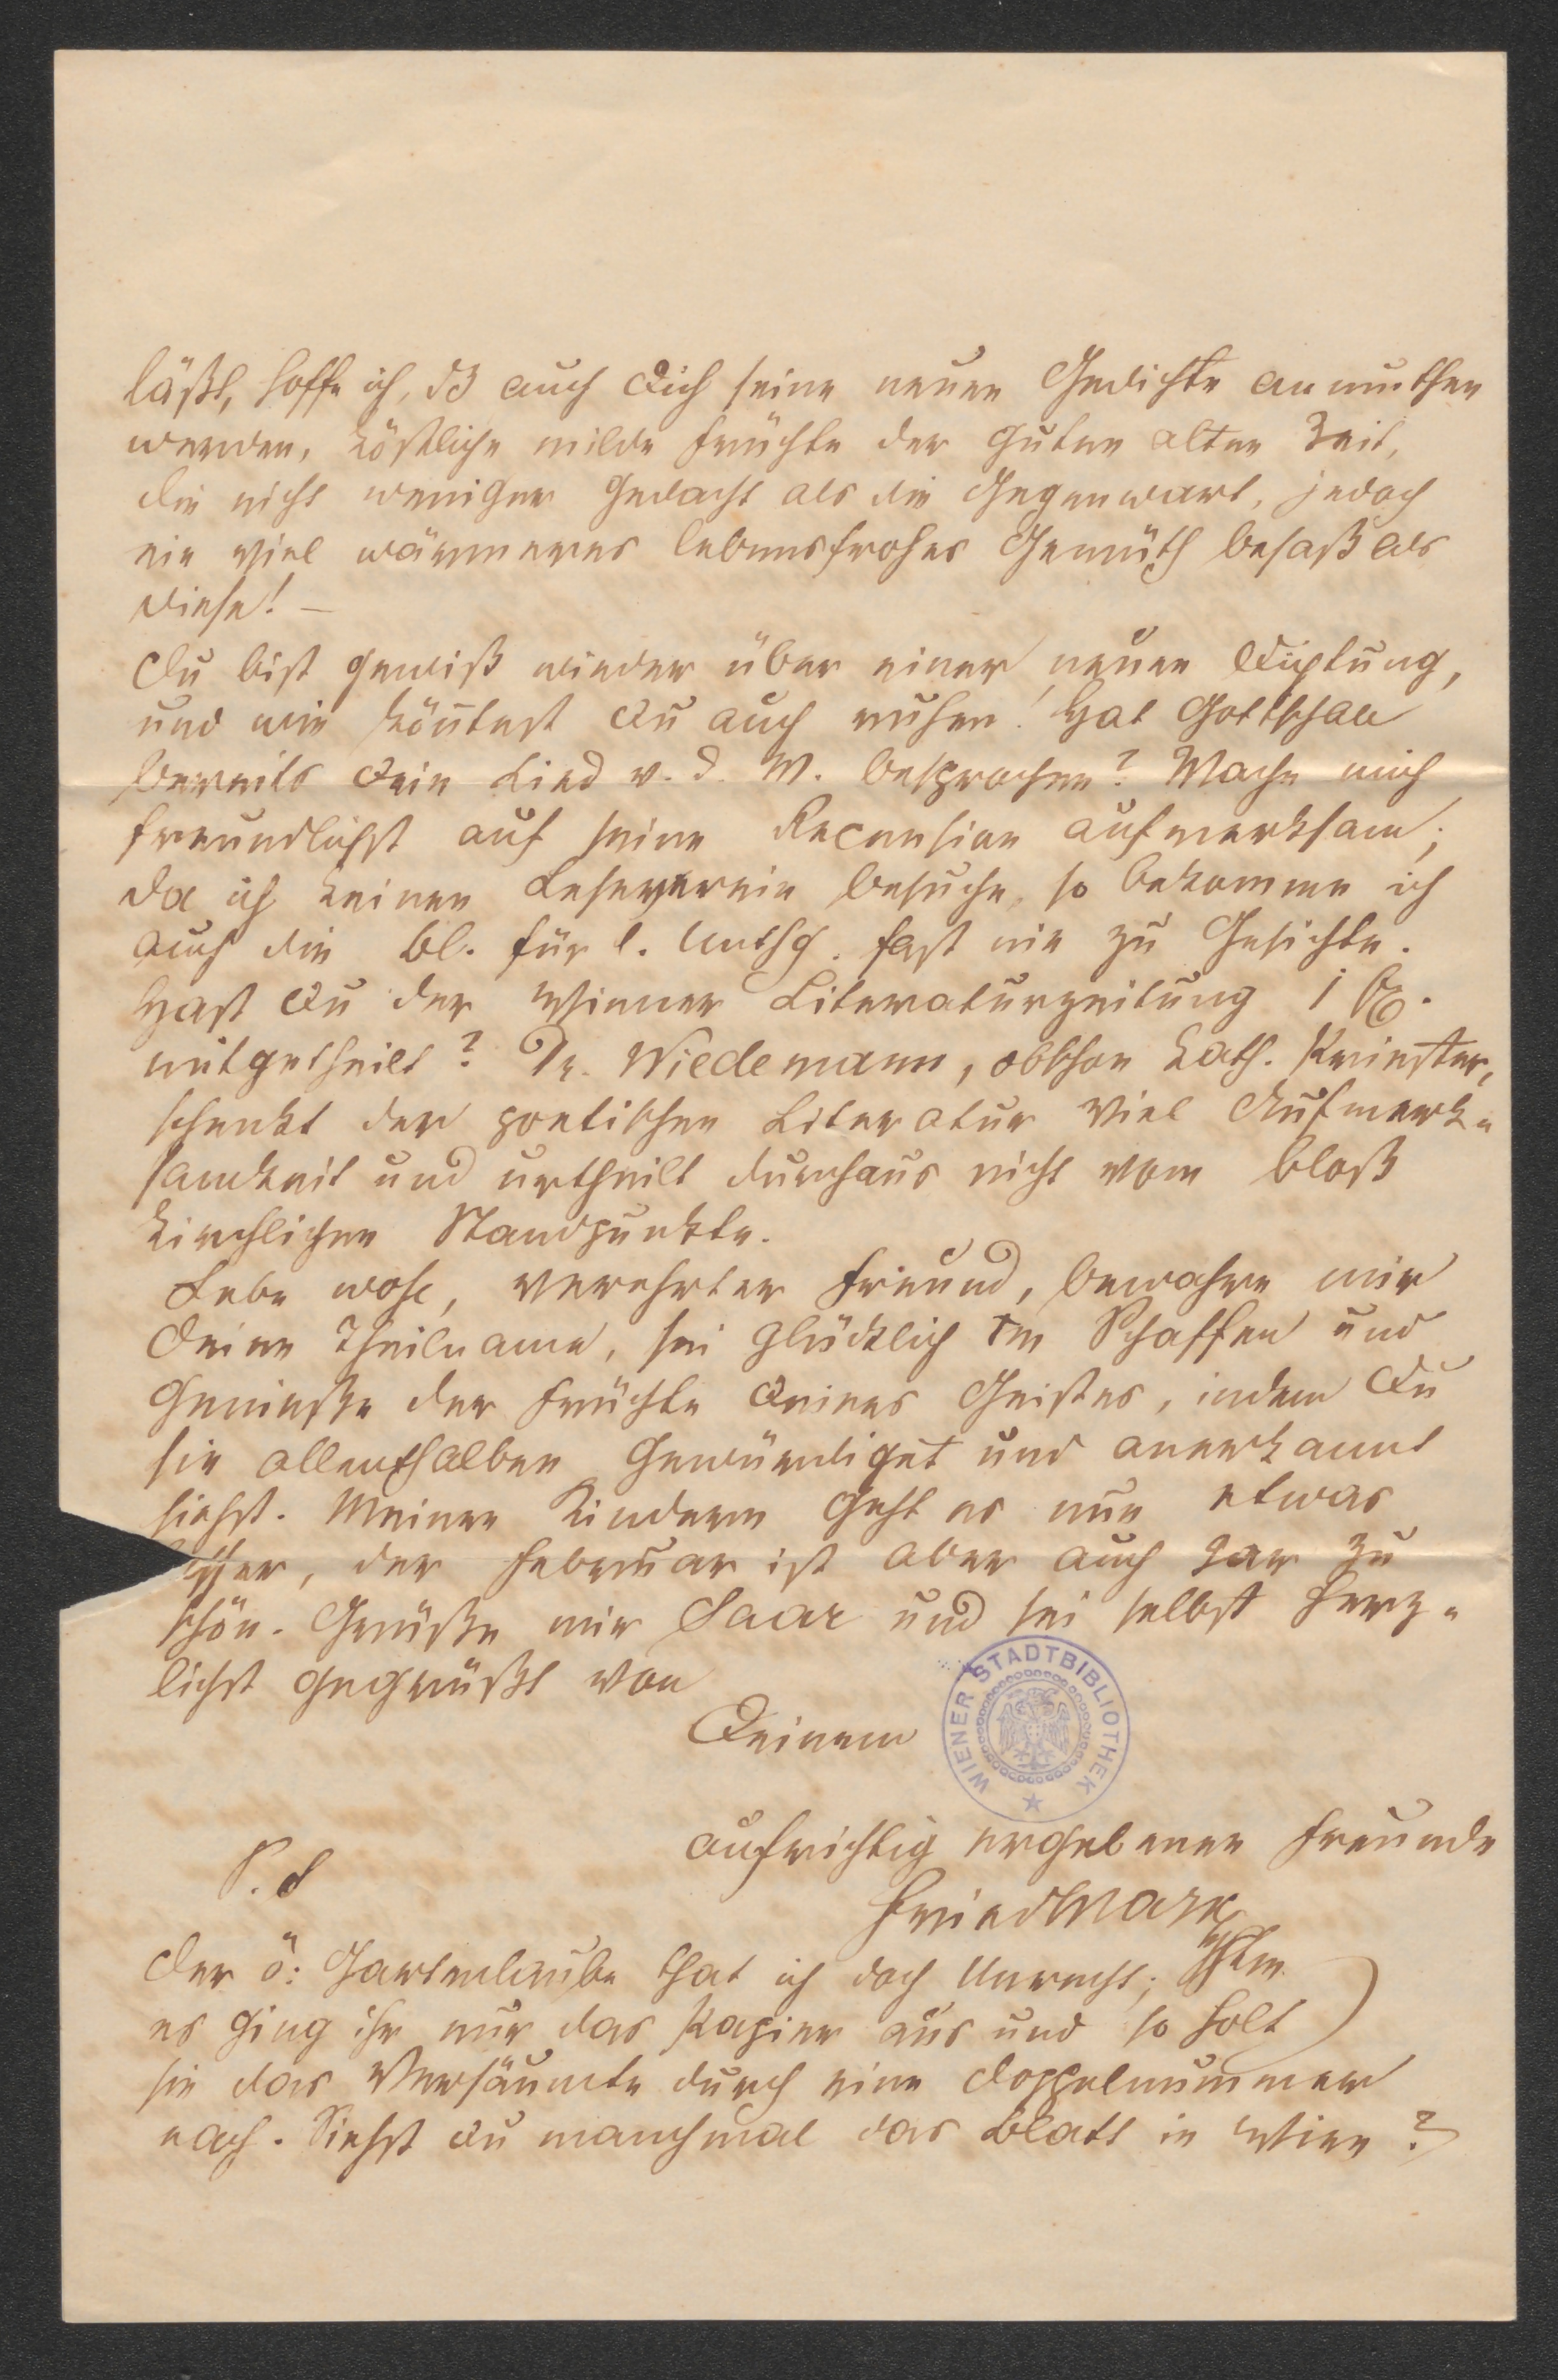 läßt, hoffe ich, dß auch Dich seine neuen Gedichte anmuthen
werden, köstliche milde Früchte der guten alten Zeit,
die nicht weniger gedacht als die Gegenwart, jedoch
ein viel wärmeres lebensfrohes Gemüth besaß als
diese! –
Du bist gewiß wieder über einer neuen Dichtung,
und wie könntest Du auch ruhen! Hat Gottschall
bereits Dein Lied v. d. W. besprochen? Mache mich
freundlichst auf seine Recension aufmerksam;
da ich keinen Leseverein besuche, so bekomme ich
auch die Bl. für l. Unthg. fast nie zu Gesichte.
Hast Du der Wiener Literaturzeitung 1 Ex.
mitgetheilt? Dr. Wiedemann, obschon kath. Priester,
schenkt der poetischen Literatur viel Aufmerk-
samkeit und urtheilt durchaus nicht vom bloß
kirchlichen Standpunkte.
Lebe wohl, verehrter Freund, bewahre mir
Deine Theilname, sei glücklich im Schaffen und
genieße der Früchte Deines Geistes, indem Du
sie allenthalben gewürdiget und anerkannt
siehst. Meinen Kindern geht es nun etwas
besser, der Februar ist aber auch gar zu
schön. Grüße mir Saar und sei selbst herz-
lichst gegrüßt von
Deinem
WIENER STADTBIBLIOTHEK
aufrichtig ergebenen Freunde
P. S
Friedmark
Der ö: Gartenlaube that ich doch Unrecht;
es ging ihr nur das Papier aus und so holt
sie das Versäumte durch eine Doppelnummer
nach. Siehst Du manchmal das Blatt in Wien?